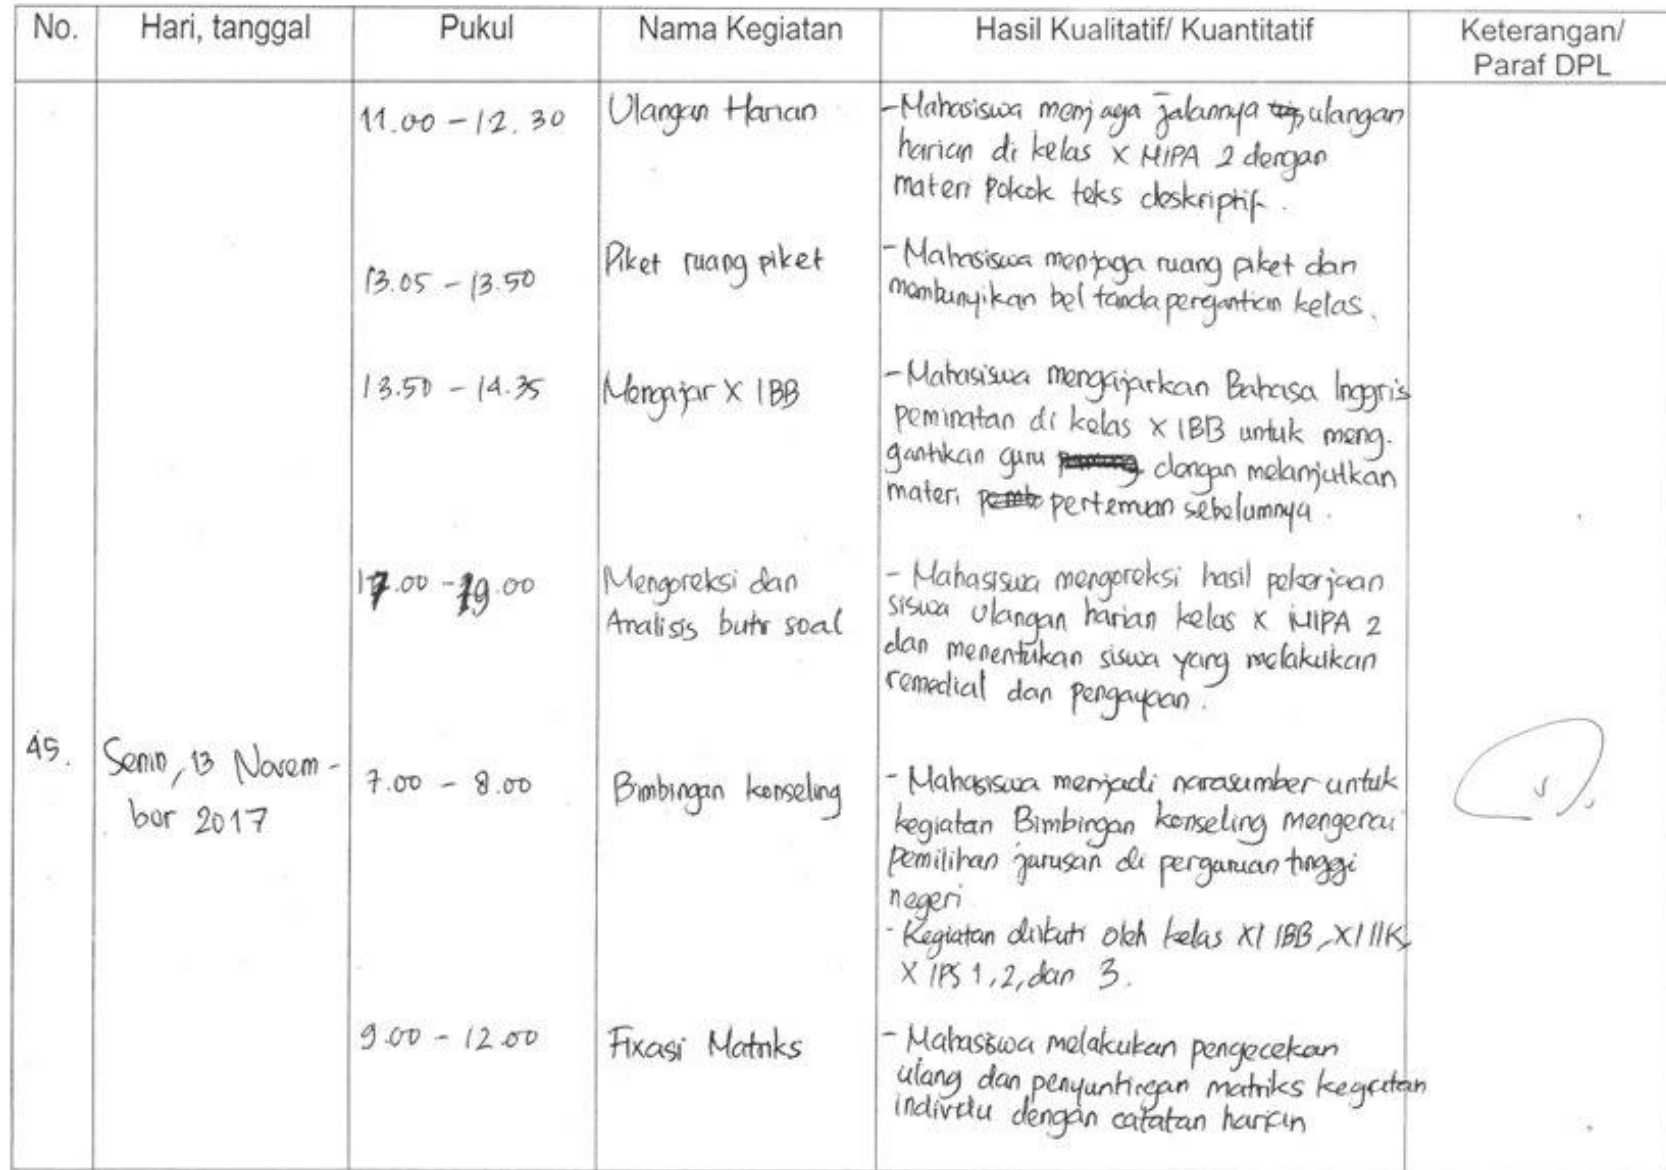 No. Hari, tanggal Pukul Nama Kegiatan Hasil Kualitatif/ Kuantitatif Keterangan/
Paraf DPL
11.00 - 12.30 Ulangan Harian - Mahasiswa menjaga jalannya ulangan
harian di kelas X MIPA 2 dengan
materi pokok teks deskriptif.
13.05 - 13.50 Piket ruang piket - Mahasiswa menjaga ruang piket dan
membunyikan bel tanda pergantian kelas.
13.50 - 14.35 Mengajar X IBB - Mahasiswa mengajarkan Bahasa Inggris
peminatan di kelas X IBB untuk meng-
gantikan guru dengan melanjutkan
materi pertemuan sebelumnya.
17.00 - 19.00 Mengoreksi dan - Mahasiswa mengoreksi hasil pekerjaan
Analisis butir soal siswa ulangan harian kelas X MIPA 2
dan menentukan siswa yang melakukan
remedial dan pengayaan.
45. Senin, 13 Novem- 7.00 - 8.00 Bimbingan konseling - Mahasiswa menjadi narasumber untuk
ber 2017 kegiatan Bimbingan konseling mengenai
pemilihan jurusan di perguruan tinggi
negeri
- Kegiatan diikuti oleh kelas XI IBB, XI IIK,
X IPS 1, 2, dan 3.
9.00 - 12.00 Fixasi Matriks - Mahasiswa melakukan pengecekan
ulang dan penyuntingan matriks kegiatan
individu dengan catatan harian